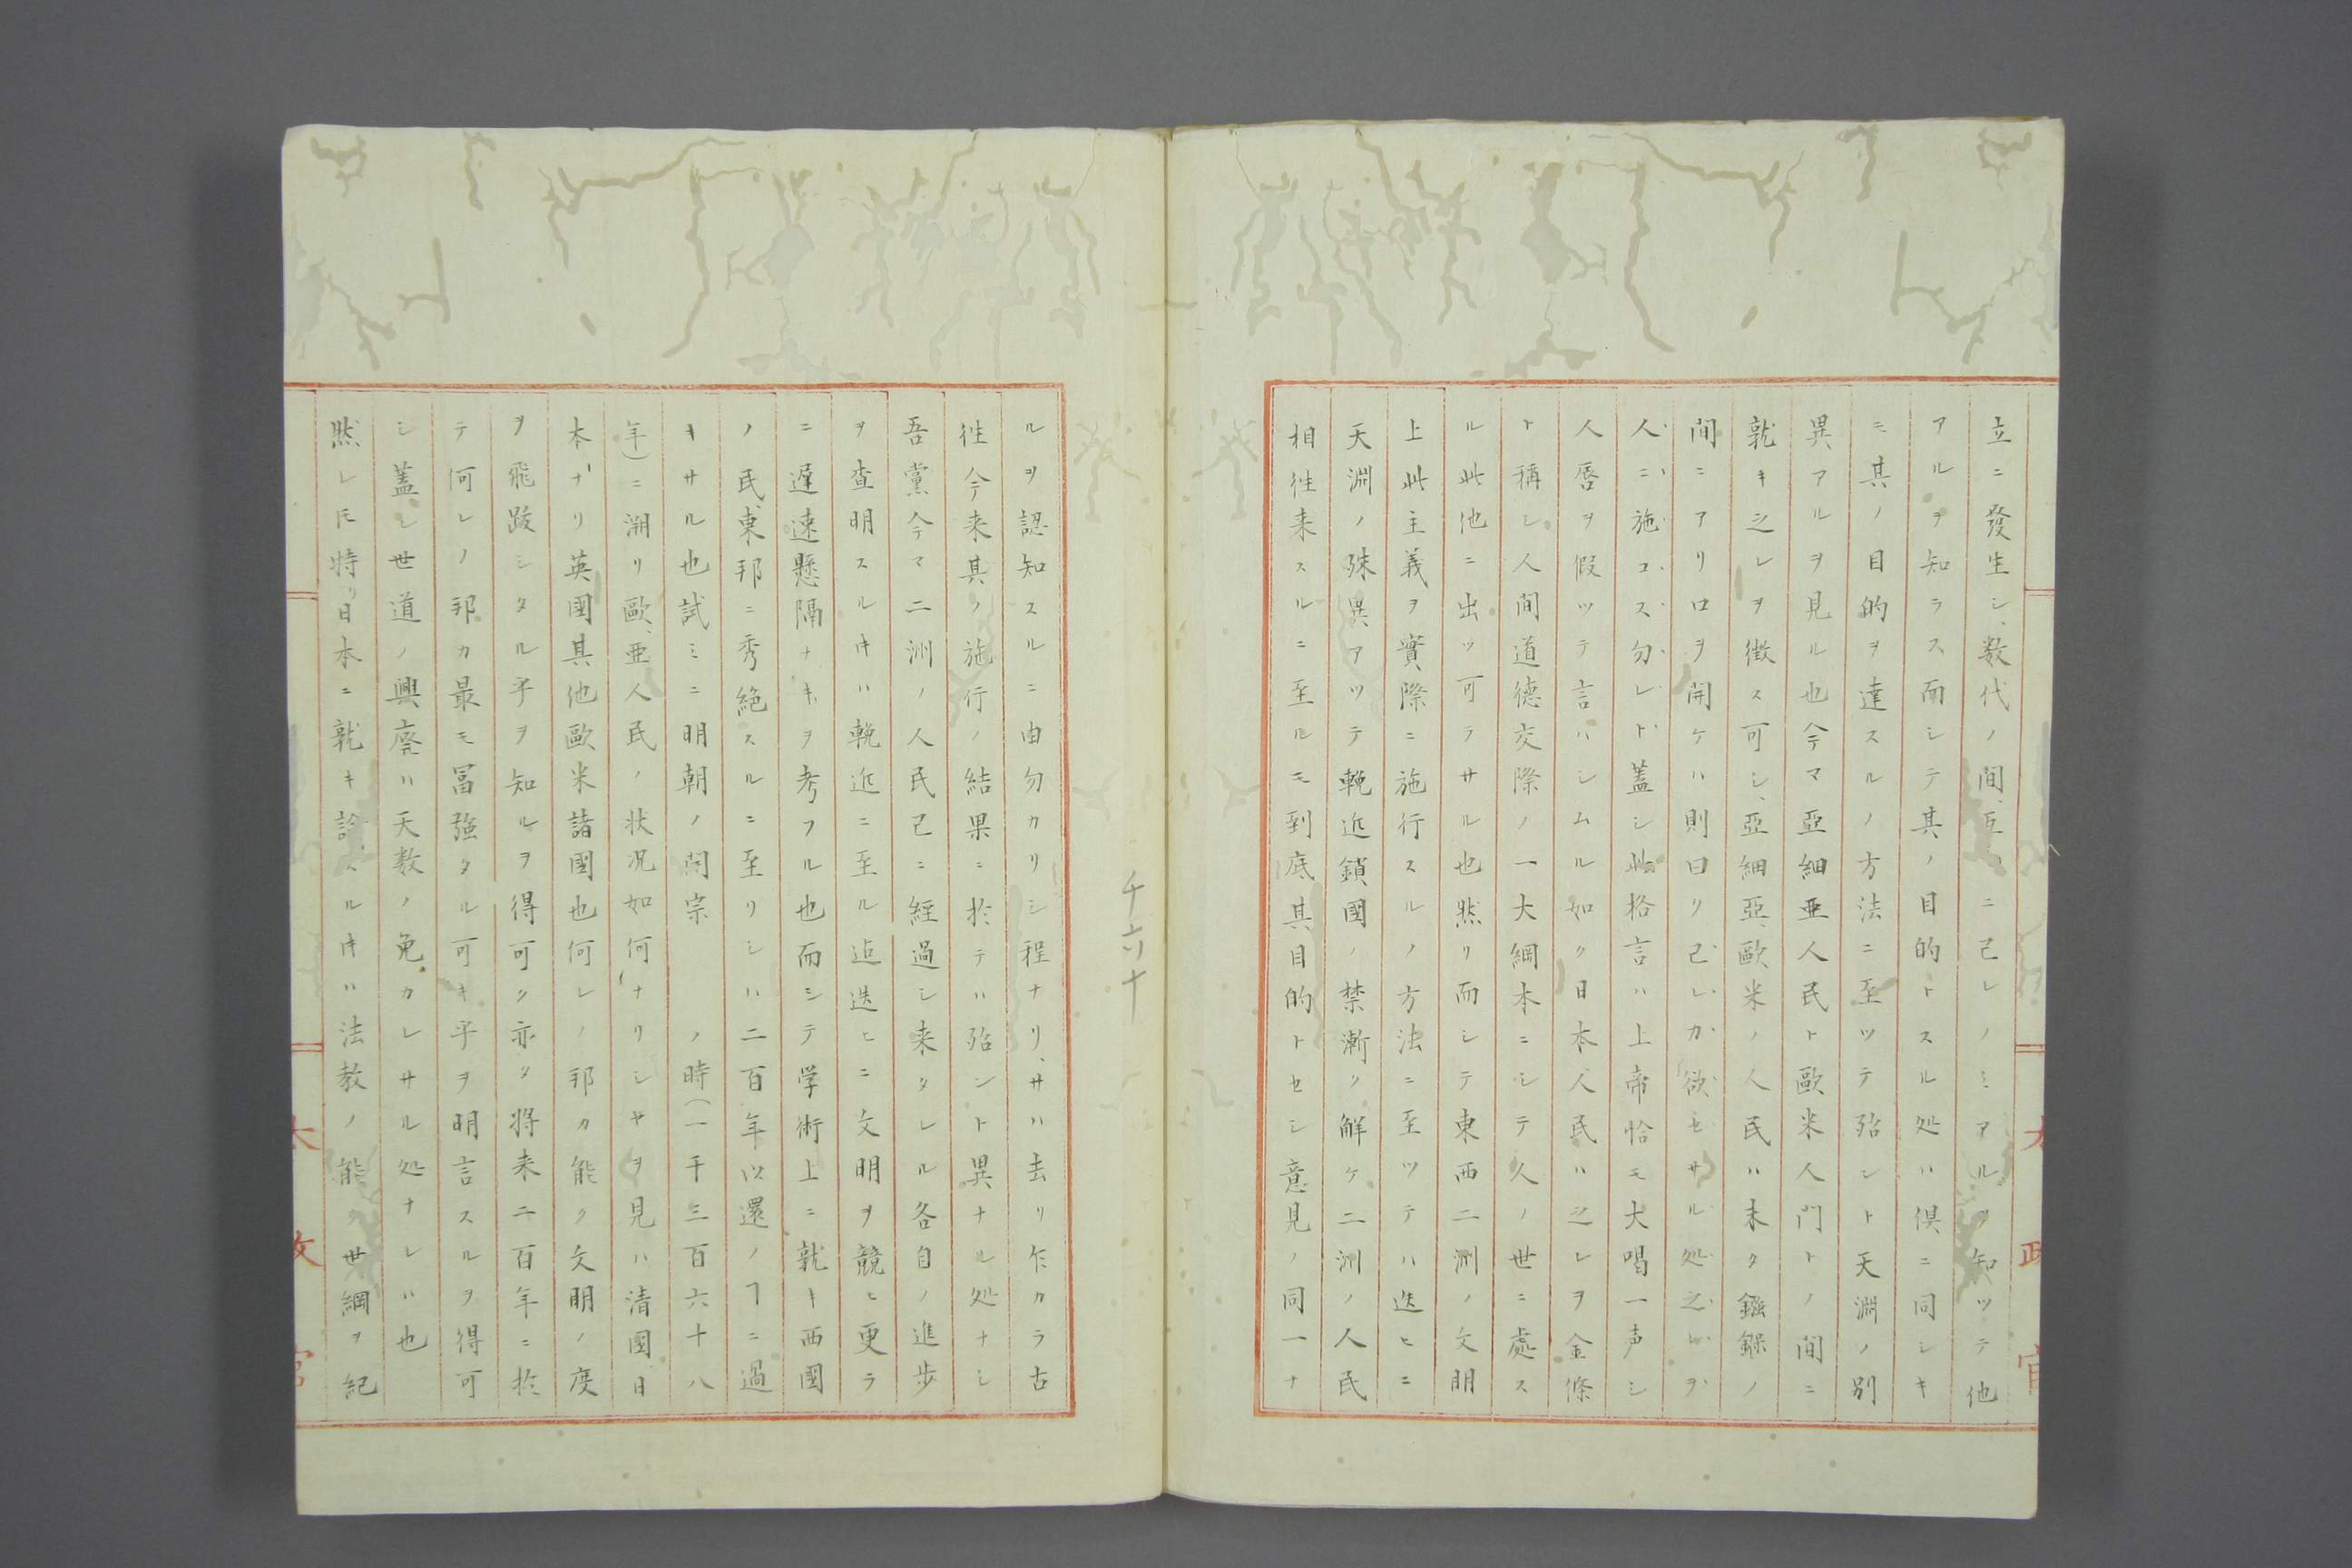 立ニ發生シ、数代ノ間、互ニ己レノミアルヲ知ツテ他
アルヲ知ラス而シテ其ノ目的トスル処ハ倶ニ同シキ
モ其ノ目的ヲ達スルノ方法ニ至ツテ殆ント天淵ノ別
異アルヲ見ル也今マ亞細亜人民ト歐米人門トノ間ニ
就キ之レヲ徴ス可シ、亞細亞、歐米ノ人民ハ未タ鎺銾ノ
間ニアリ口ヲ開ケハ則曰ク己レカ欲セサル処之レヲ
人ニ施コス勿レト蓋シ此格言ハ上帝恰モ大唱一声シ
人唇ヲ假ツテ言ハシムル如ク日本人民ハ之レヲ金條
ト稱シ人間道徳交際ノ一大綱本ニシテ人ノ世ニ處ス
ル此他ニ出ツ可ラサル也然リ而シテ東西二洲ノ文明
上此主義ヲ實際ニ施行スルノ方法ニ至ツテハ迭ヒニ
天淵ノ殊異アツテ輓近鎖國ノ禁漸ク解ケ二洲ノ人民
相徃来スルニ至ルモ到底其目的トセシ意見ノ同一ナ
ルヲ認知スルニ由勿カリシ程ナリ、サハ去リ乍カラ古
徃今来其ノ施行ノ結果ニ於テハ殆ント異ナル処ナシ
吾黨今マ二洲ノ人民已ニ經過シ来タレル各自ノ進歩
ヲ査明スル𪜈ハ輓近ニ至ル迠迭ヒニ文明ヲ競ヒ更ラ
ニ遲速懸隔ナキヲ考フル也而シテ学術上ニ就ト西國
ノ民、東邦ニ秀絶スルニ至リシハ二百年以還ノヿニ過
キサル也試ミニ明朝ノ開宗　ノ時(一千三百六十八
年)ニ溯リ歐、亜人民ノ状况如何ナリシヤヲ見ハ清國、日
本ナリ英國其他歐米諸國也何レノ邦カ能ク文明ノ度
ヲ飛跋シタル乎ヲ知ルヲ得可ク亦タ將来二百年ニ於
テ何レノ邦カ最モ冨強タル可キ乎ヲ明言スルヲ得可
シ蓋シ世道ノ興廃ハ天数ノ免カレサル処ナレハ也
然レ𪜈特リ日本ニ就キ論スルキハ法教ノ能ク世綱ヲ紀
千六十
太政官
太政官